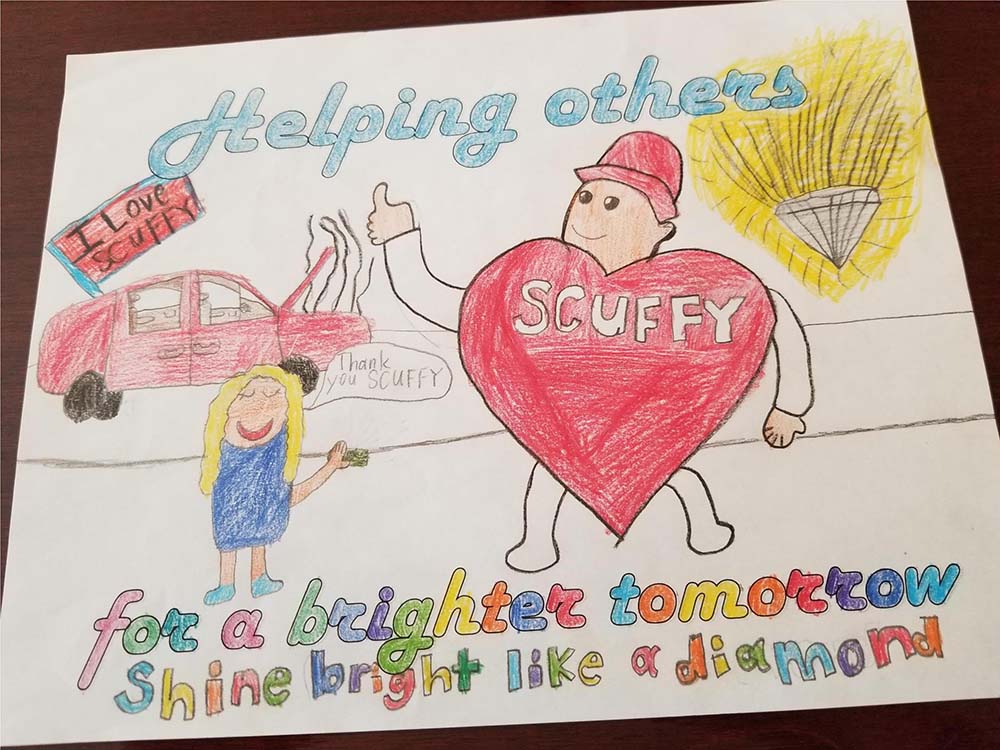 Helping others
I Love
SCUFFY
SCUFFY
Thank
you SCUFFY
for a brighter tomorrow
Shine bright like a diamond